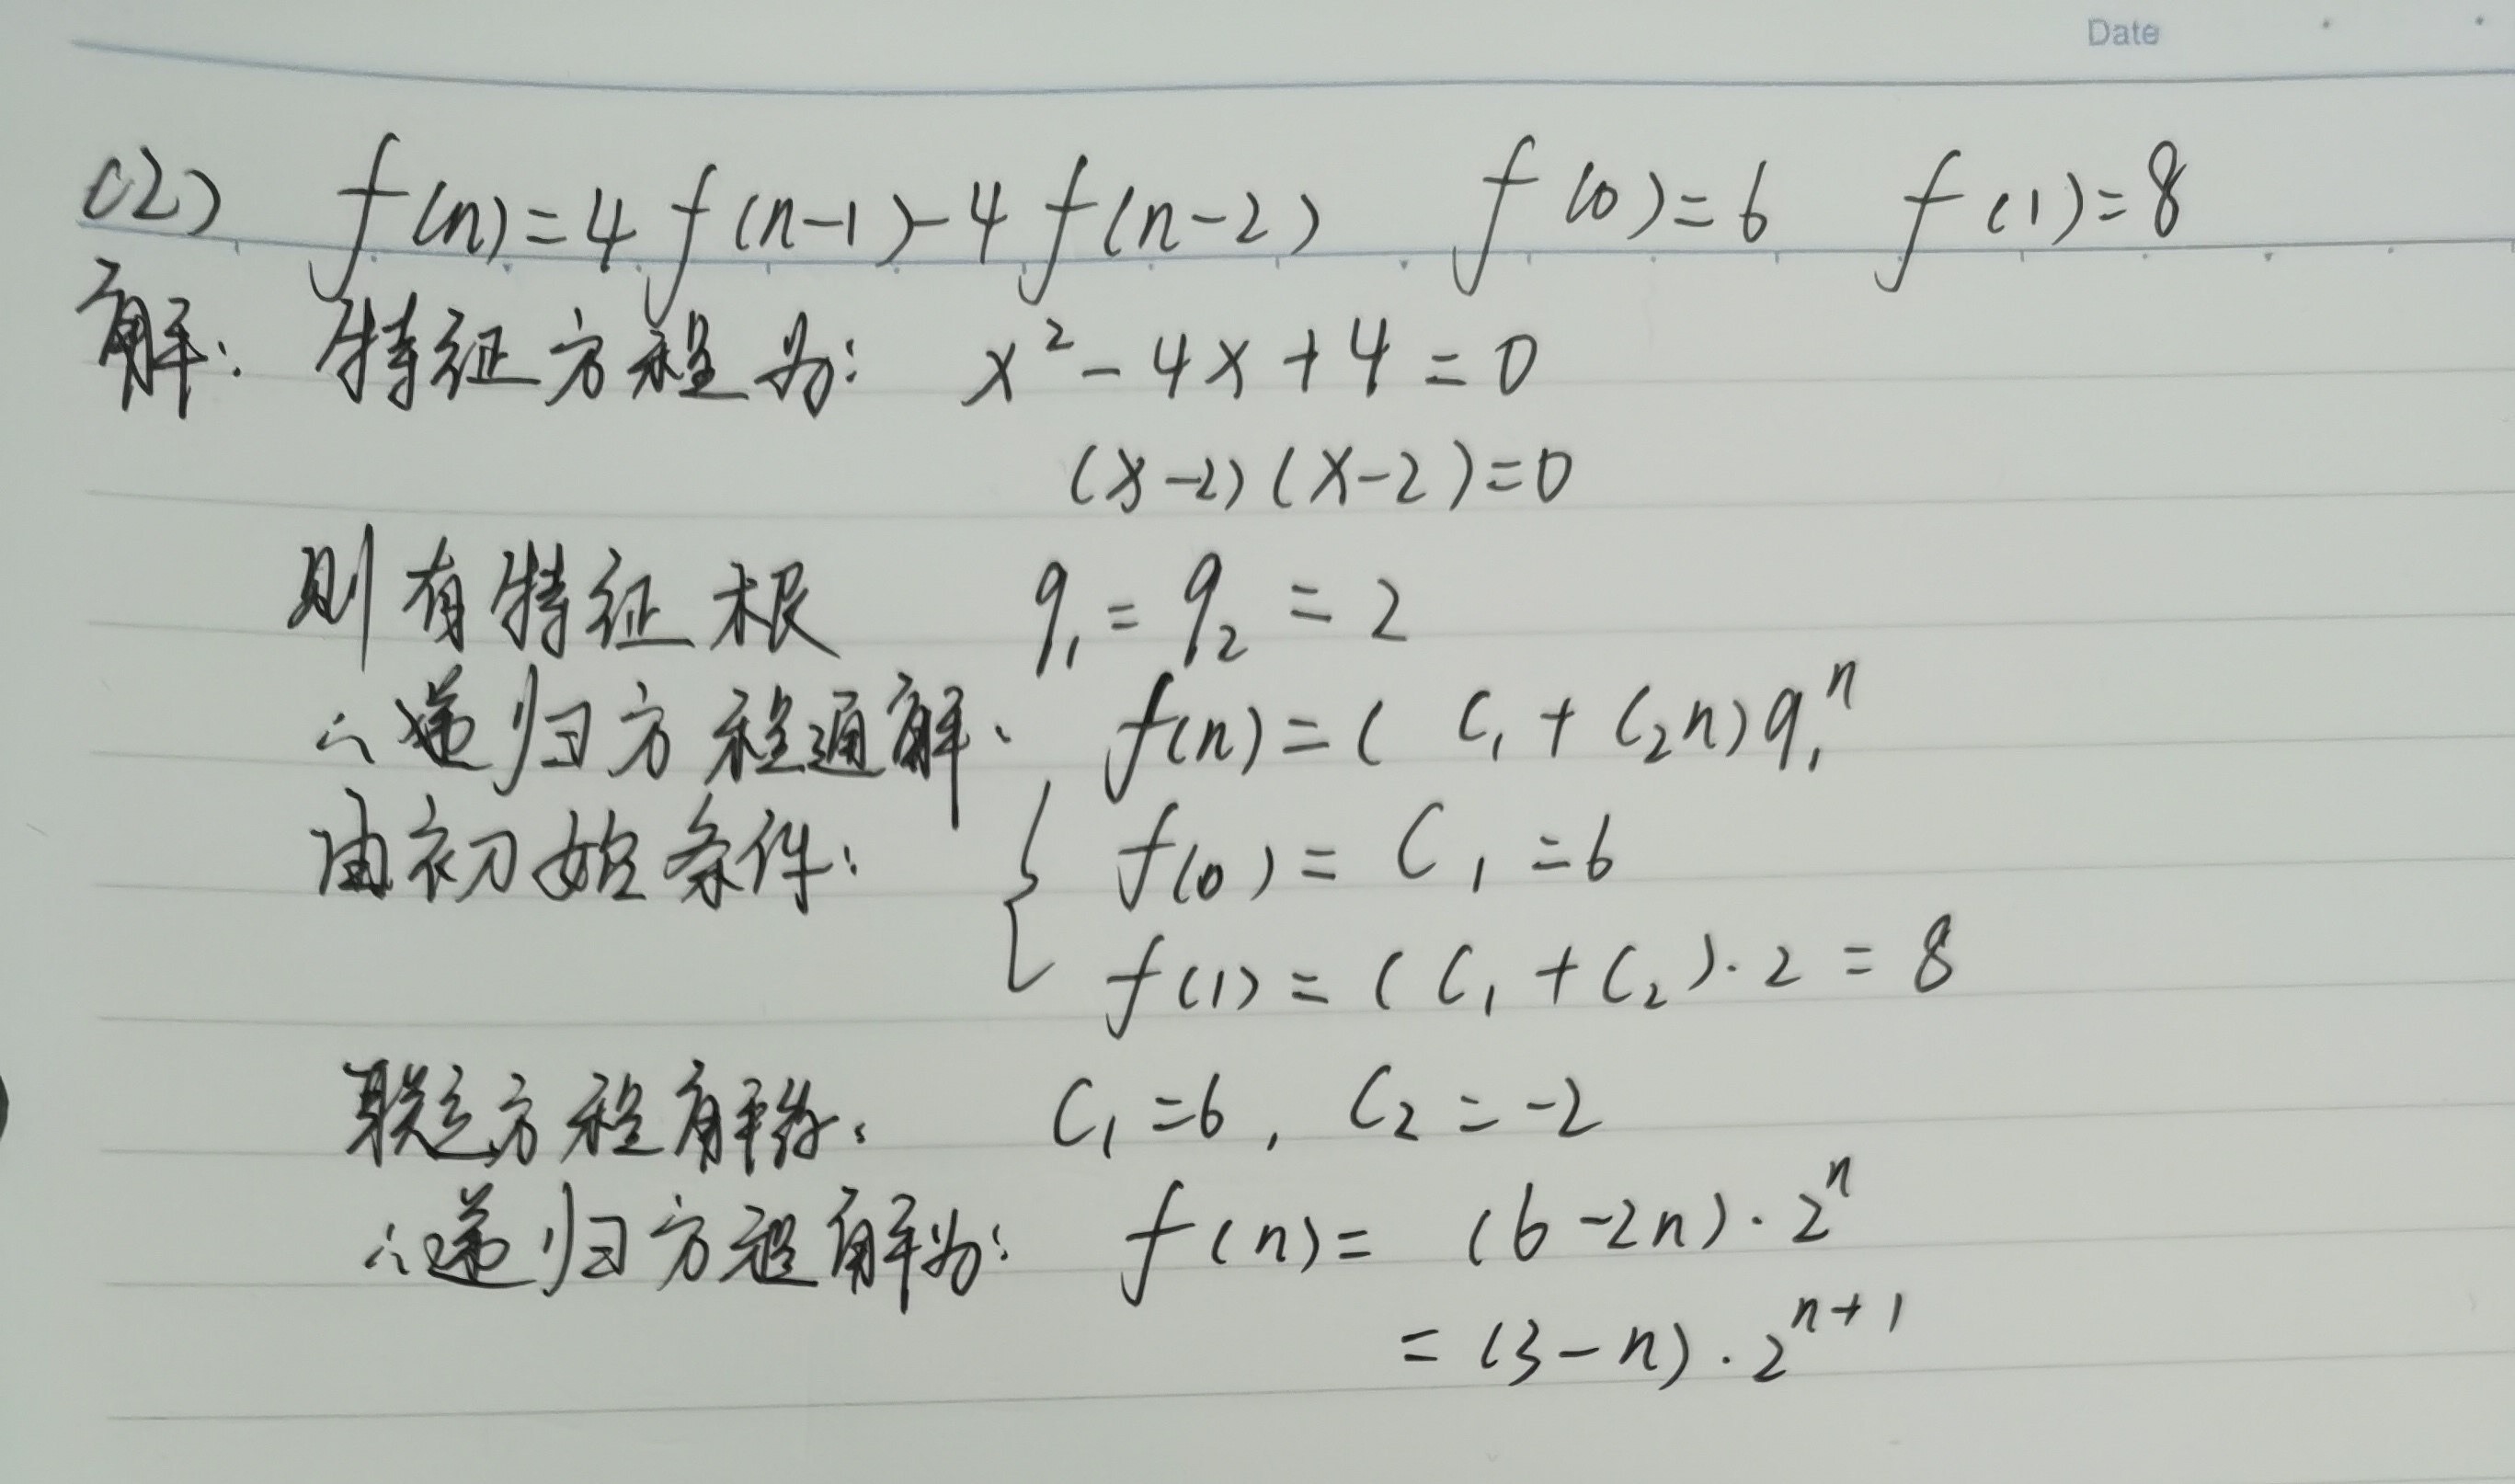 Date
(2) f(n)=4f(n-1)-4f(n-2) f(0)=6 f(1)=8
解: 特征方程为: x²-4x+4=0
(x-2)(x-2)=0
则有特征根 q₁=q₂=2
∴递归方程通解: f(n)=(C₁+C₂n)q₁ⁿ
由初始条件: { f(0)=C₁=6
f(1)=(C₁+C₂)·2=8
联立方程解得: C₁=6, C₂=-2
∴递归方程解为: f(n)=(6-2n)·2ⁿ
=(3-n)·2ⁿ⁺¹